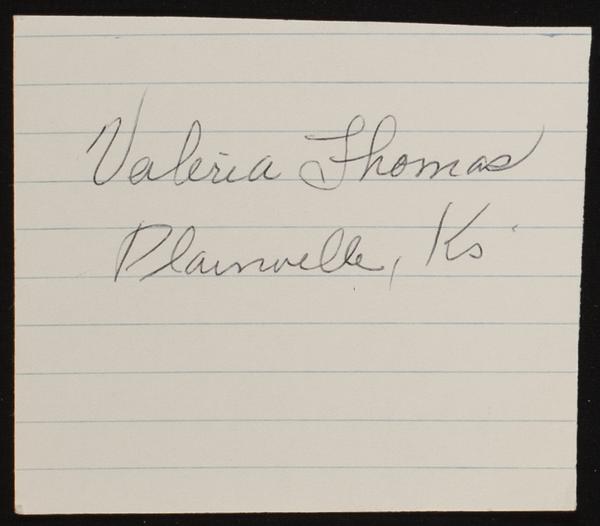 Valeria Thomas
Plainville, Ks.